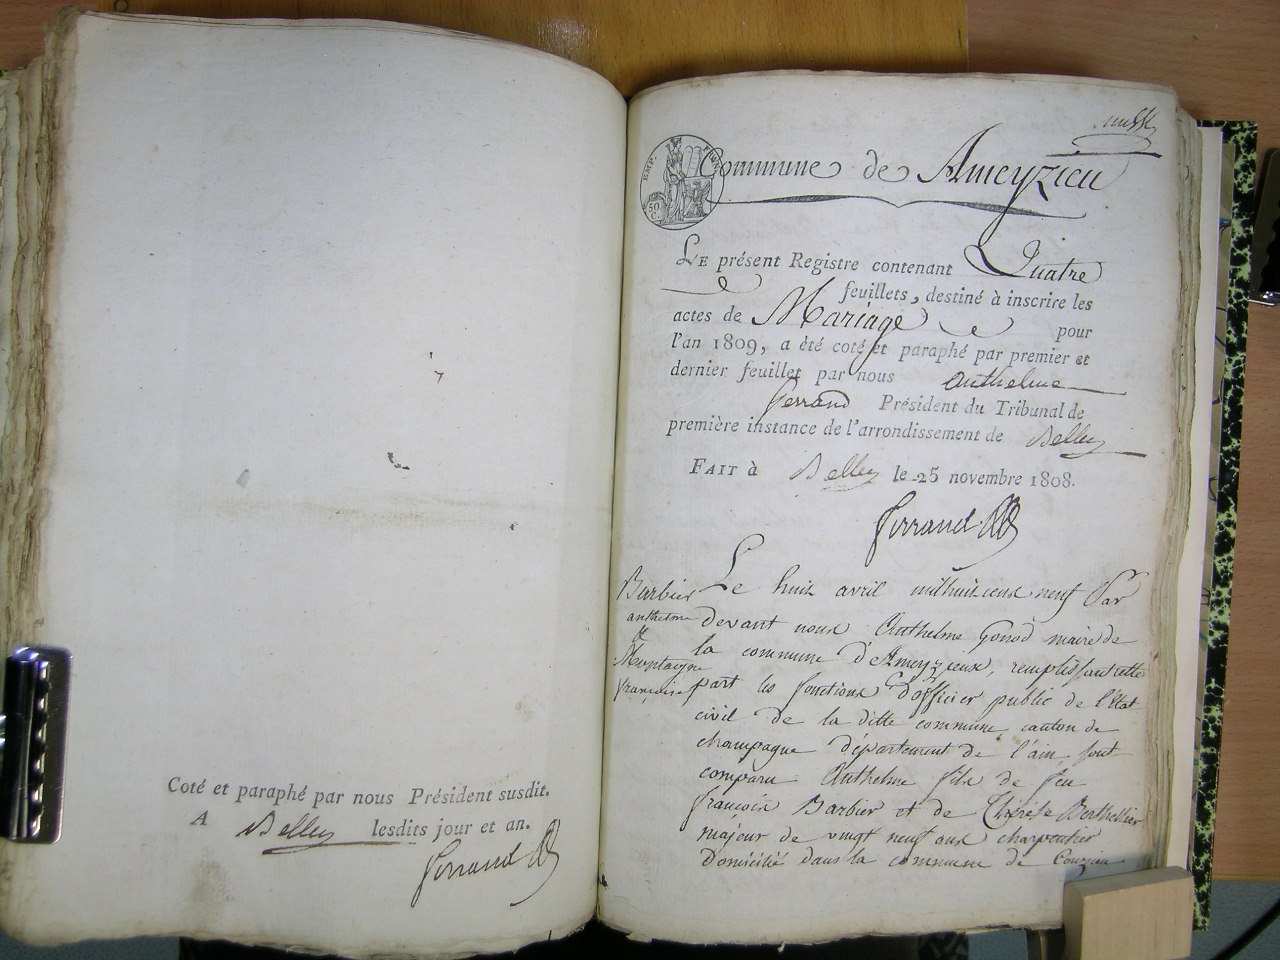 Coté et paraphé par nous Président susdit.
A Belley lesdits jour et an.
Ferrand
EMP. FRAN.
50
C.
Commune de Ameyzieu
LE présent Registre contenant Quatre
feuillets, destiné à inscrire les
actes de Mariage pour
l'an 1809, a été coté et paraphé par premier et
dernier feuillet par nous Anthelme
Ferrand Président du Tribunal de
première instance de l'arrondissement de Belley
FAIT à Belley le 25 novembre 1808.
Ferrand
Barbier
anthelme
&
Montaigne
françoise
Le huit avril mil huit cent neuf Par
devant nous Anthelme Gonod maire de
la commune d'Ameyzieux, remplissant cette
part les fonctions D'officier public de l'état
civil de la ditte commune canton de
champagne département de l'ain, sont
comparu Anthelme fils de feu
françois Barbier et de Thérèse Berthellier
majeur de vingt neuf ans charpentier
Domicilié dans la commune de